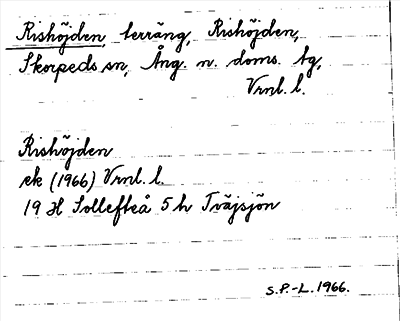 Rishöjden, terräng, Rishöjden,
Skorpeds sn, Ång. n. doms. tg,
Vrnl. l.
Rishöjden
ek (1966) Vrnl. l.
19 H Sollefteå 5 h Träjsjön
S.P.-L. 1966.